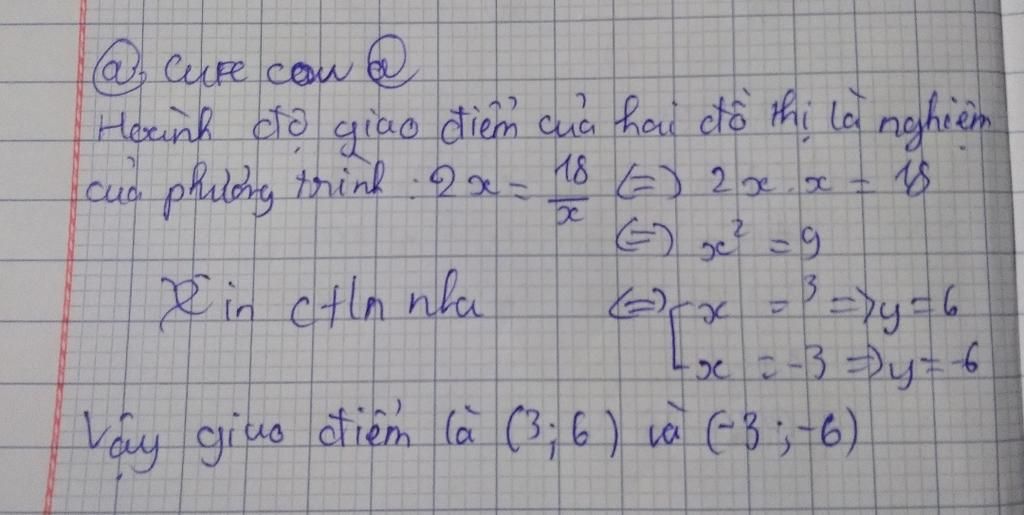 ⓐ, cure câu ⓐ
Hoành độ giao điểm của hai đồ thị là nghiệm
của phương trình: 2x = 18/x (=) 2x.x = 18
(=) x² = 9
Xin ctln nha (=) [x = 3 => y = 6
x = -3 => y = -6
Vậy giao điểm là (3; 6) và (-3; -6)